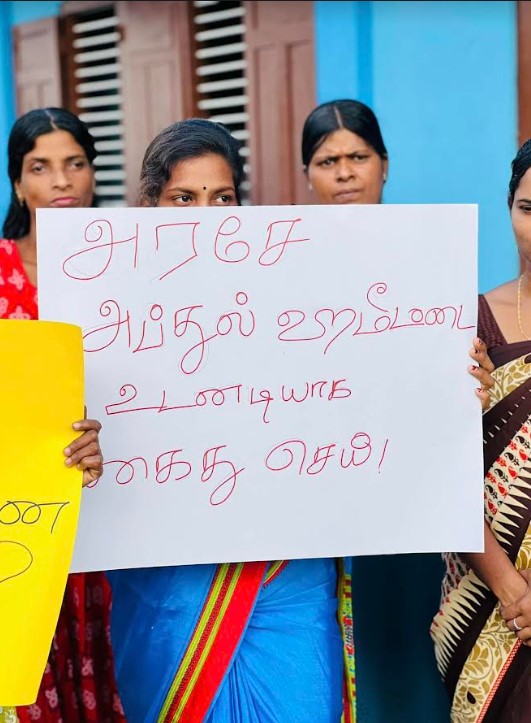 அரசே
அப்துல் ஹமீடை
உடனடியாக
கைது செய்!